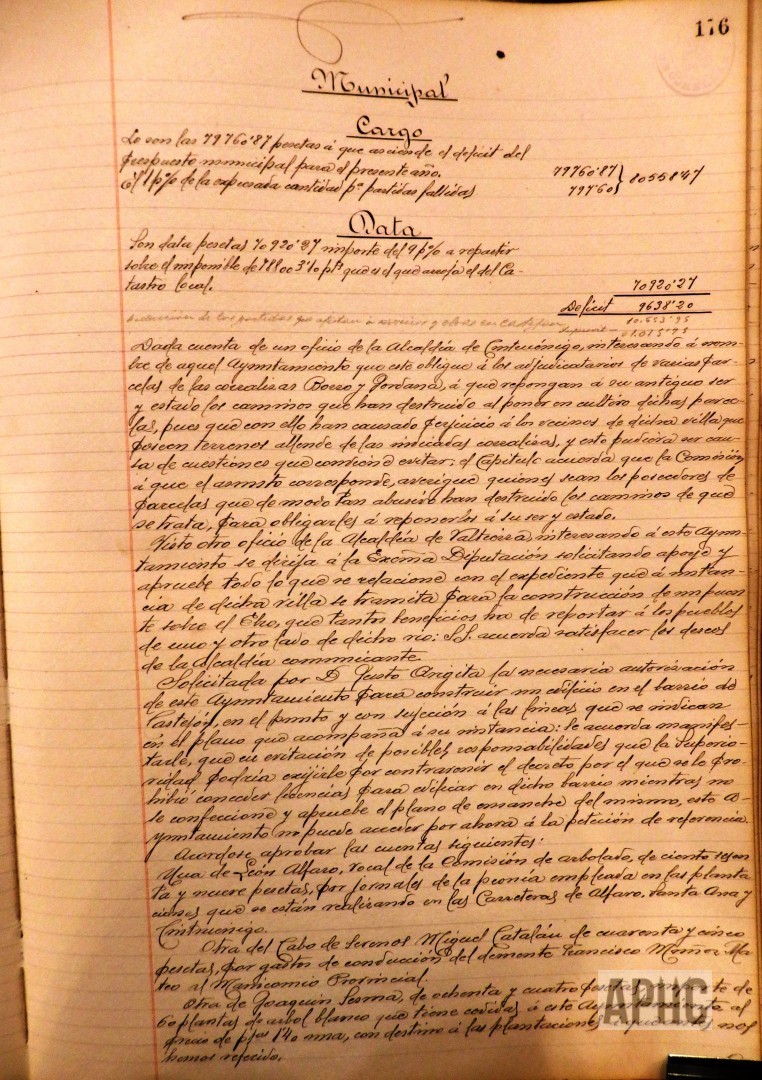 176
Municipal
Cargo
Lo son las 79760'87 pesetas á que asciende el deficit del
presupuesto municipal para el presente año. 79760'87
El 1 p% de la expresada cantidad pª partidas fallidas 797'60 } 80558'47
Data
Son data pesetas 70920'27 importe del 9 p% a repartir
sobre el imponible de 788003'10 pts que es el que arroja el del Ca-
tastro local.
70920'27
Deficit 9638'20
Dada cuenta de un oficio de la Alcaldía de Cintruénigo, interesando á nom-
bre de aquel Ayuntamiento que este obligue á los adjudicatarios de varias par-
celas de las corralizas Borro y Jordana, á que repongan á su antiguo ser
y estado los caminos que han destruido al poner en cultivo dichas parce-
las, pues que con ello han causado perjuicio á los vecinos de dicha villa que
poseen terrenos allende de las indicadas corralizas, y esto pudiera ser cau-
sa de cuestiones que conviene evitar; el Capítulo acuerda que la Comisión
á que el asunto corresponde, averigue quiénes sean los poseedores de
parcelas que de modo tan abusivo han destruido los caminos de que
se trata, para obligarles á reponerlos á su ser y estado.
Visto otro oficio de la Alcaldía de Valtierra, interesando á este Ayun-
tamiento se dirija á la Excma Diputación solicitando apoye y
apruebe todo lo que se relacione con el expediente que á instan-
cia de dicha villa se tramita para la construcción de un puen-
te sobre el Ebro, que tantos beneficios ha de reportar á los pueblos
de uno y otro lado de dicho rio: S.S. acuerda satisfacer los deseos
de la Alcaldía comunicante.
Solicitada por D. Justo Angita la necesaria autorización
de este Ayuntamiento para construir un edificio en el barrio de
Castejón, en el punto y con sujeción á las líneas que se indican
en el plano que acompaña á su instancia: se acuerda manifes-
tarle, que en evitación de posibles responsabilidades que la Superio-
ridad podría exijirle por contravenir el decreto por el que se le pro-
hibió conceder licencias para edificar en dicho barrio mientras no
se confeccione y apruebe el plano de ensanche del mismo, este A-
yuntamiento no puede acceder por ahora á la petición de referencia.
Acordose aprobar las cuentas siguientes:
Una de León Alfaro, vocal de la Comisión de arbolado, de ciento sesen
ta y nueve pesetas, por jornales de la peonía empleada en las planta
ciones que se están realizando en las Carreteras de Alfaro, Santa Ana y
Cintruénigo.
Otra del Cabo de Serenos Miguel Catalán de cuarenta y cinco
pesetas, por gastos de conducción del demente Francisco Muñoz Ma-
teo al Manicomio Provincial.
Otra de Joaquín Sesma, de ochenta y cuatro pesetas, importe de
60 plantas de arbol blanco que tiene cedidas á este Ayuntamiento al
precio de ptas 1'40 una, con destino á las plantaciones que nos
hemos referido.
APHG